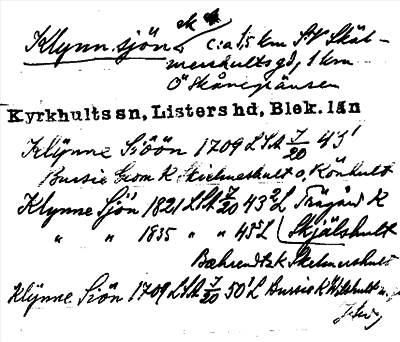 Klynn.sjön c:a 1,5 km SV Skäl-
mershultsgd, 1 km
O Skånegränsen
Kyrkhults sn, Listers hd, Blek. län
Klÿnne Siöön 1709 LSA J/20 43'
Bursie Geom K Skielmershult o, Könhult
Klynne Sjön 1821 LSA J/20 43² L Trägård K
" " 1835 " " 45² L Skjälshult
Bæhrendtz K Skelmershult
Klÿnne Siön 1709 LSA J/20 50' L Bursie K